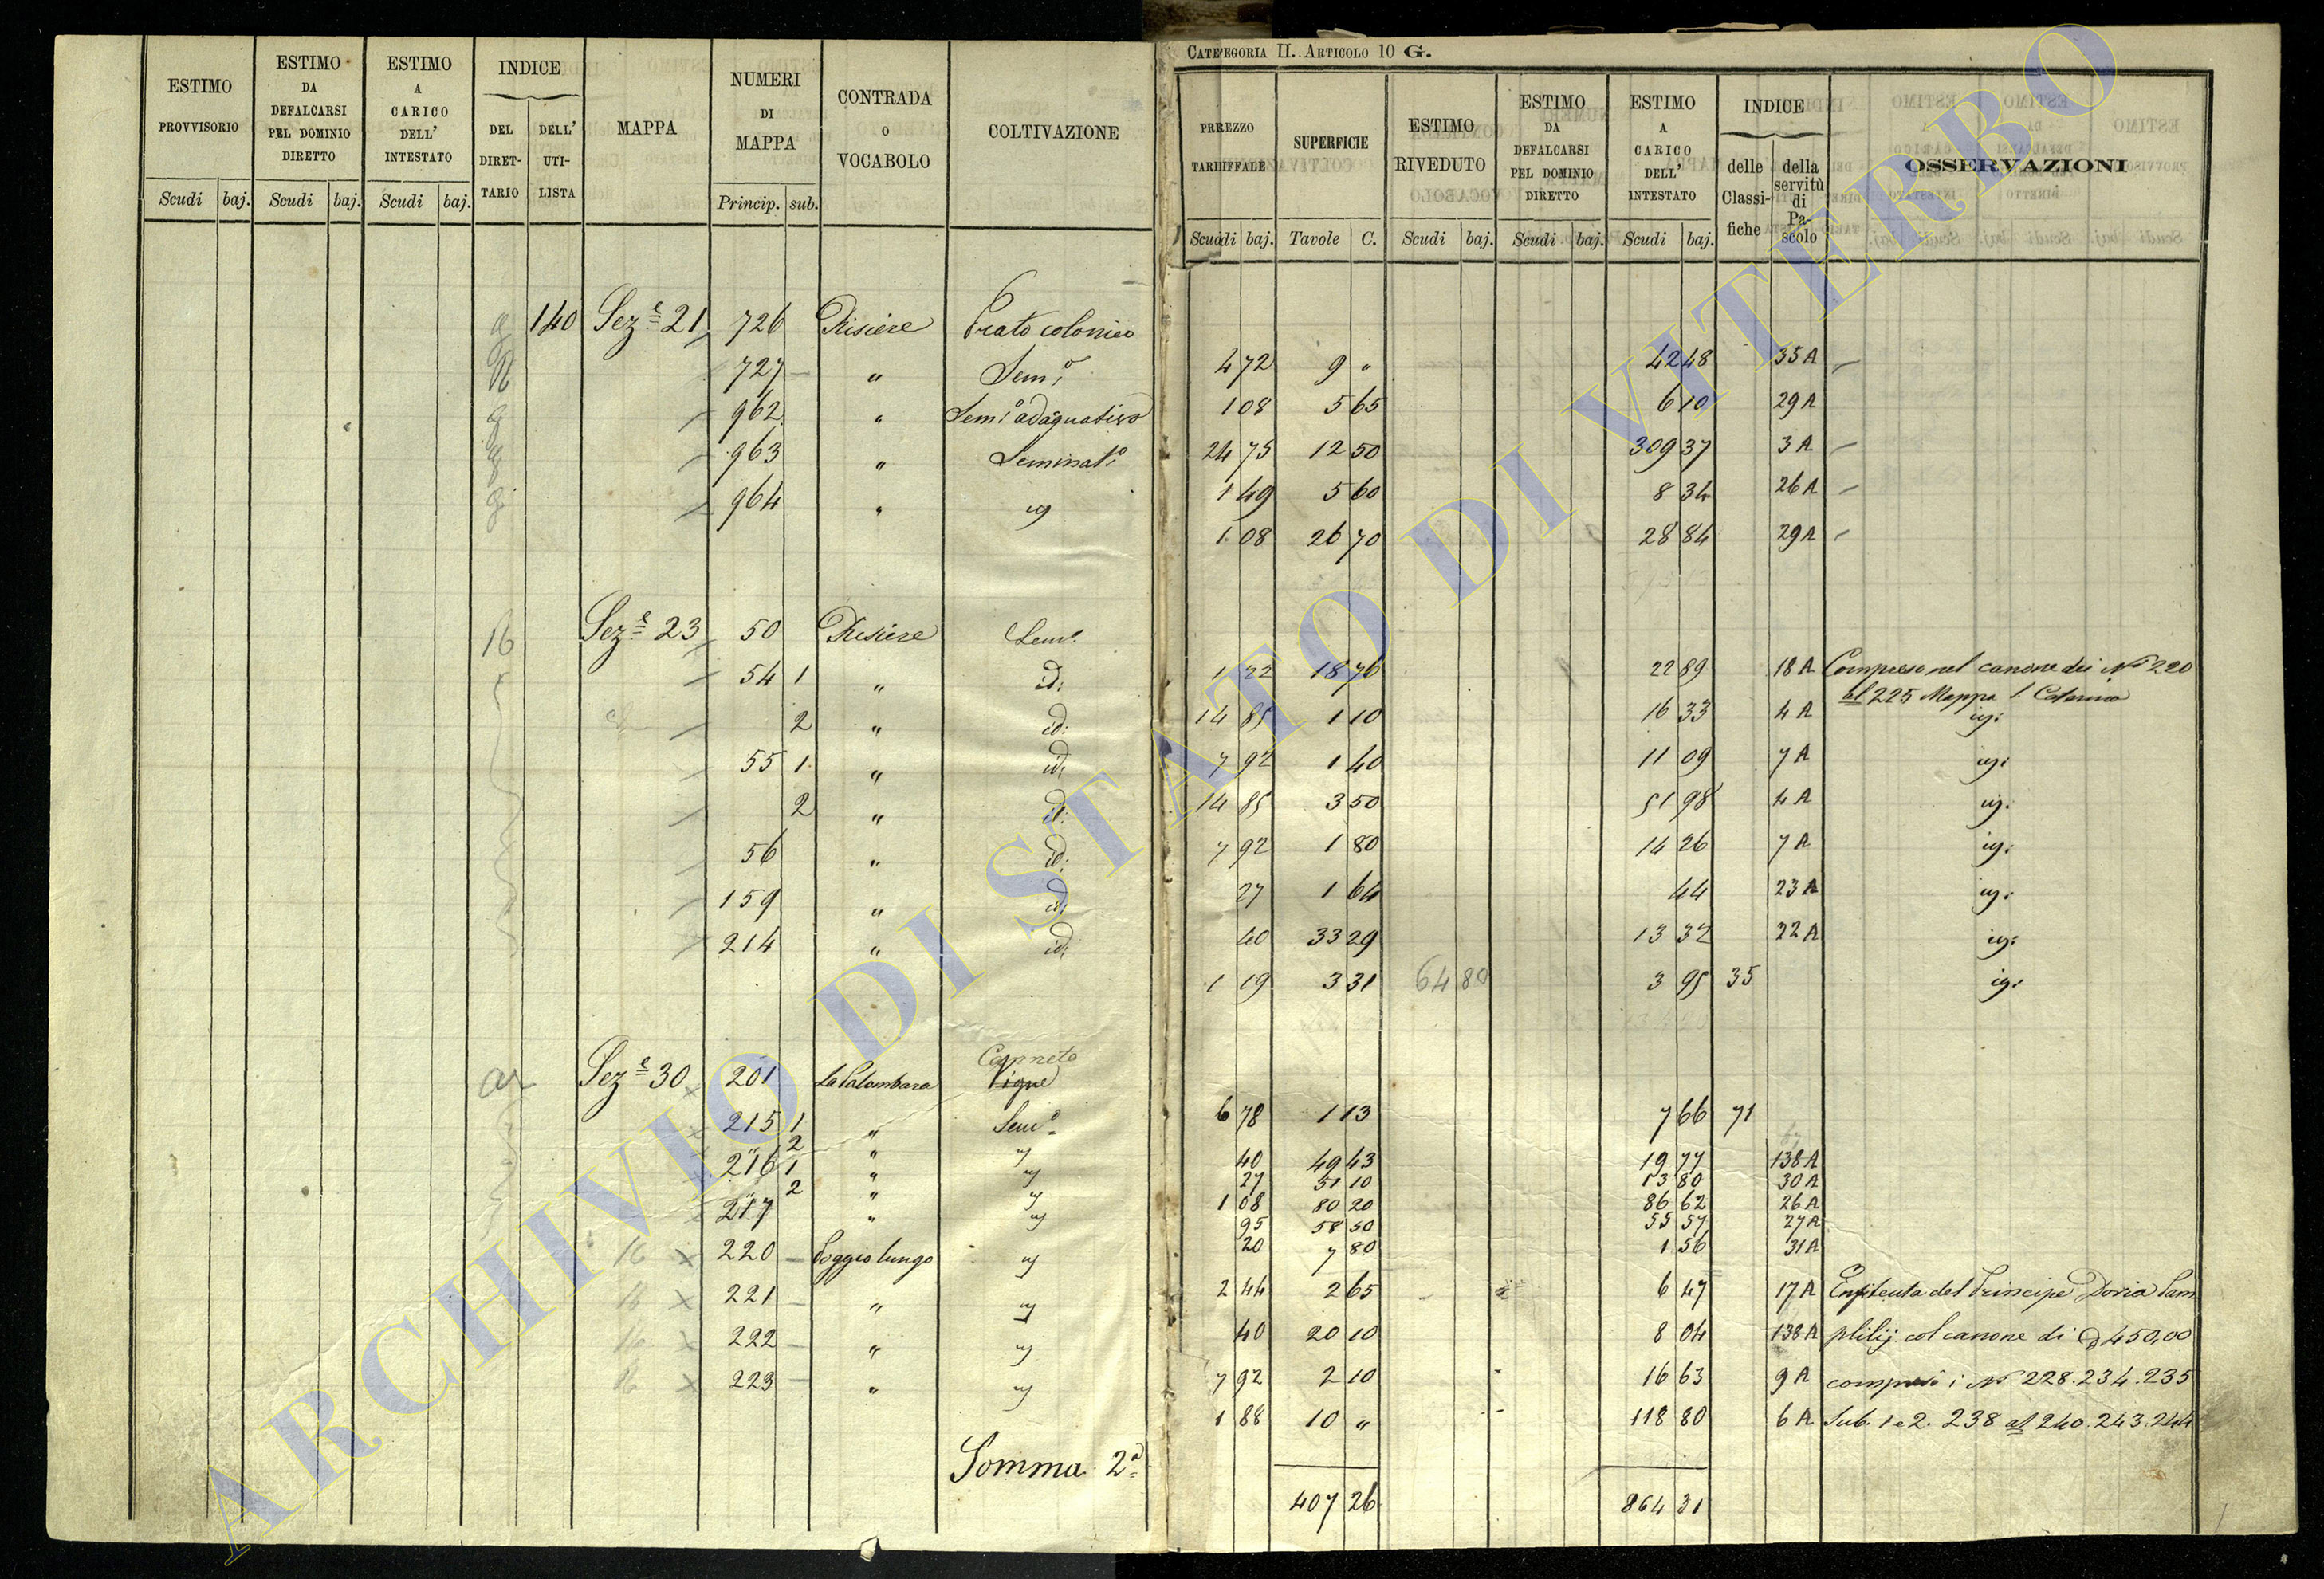 CATEGORIA II. ARTICOLO 10 G.
ESTIMO PROVVISORIO Scudi baj.
ESTIMO DA DEFALCARSI PEL DOMINIO DIRETTO Scudi baj.
ESTIMO A CARICO DELL' INTESTATO Scudi baj.
INDICE DEL DIRETTARIO DELL' UTILISTA
MAPPA
NUMERI DI MAPPA Princip. sub.
CONTRADA O VOCABOLO
COLTIVAZIONE
PREZZO TARIFFALE Scudi baj.
SUPERFICIE Tavole C.
ESTIMO RIVEDUTO Scudi baj.
ESTIMO DA DEFALCARSI PEL DOMINIO DIRETTO Scudi baj.
ESTIMO A CARICO DELL' INTESTATO Scudi baj.
INDICE delle Classifiche della servitù di Pascolo
OSSERVAZIONI
140 Sez.e 21 726 Risiere Prato colonico 4 72 9 " 42 48 35 A
727 " Sem.o 1 08 5 65 6 10 29 A
962 " Sem.o adaquativo 24 75 12 50 309 37 3 A
963 " Seminat.o 1 49 5 60 8 34 26 A
964 " id 1 08 26 70 28 84 29 A
16 Sez.e 23 50 Risiere Sem.o 1 22 18 76 22 89 18 A Compreso nel canone dei Ni 220
al 225 Mappa S. Caterina
54 1 " id: 14 85 1 10 16 33 4 A id:
2 " id: 7 92 1 40 11 09 7 A id:
55 1 " id: 14 85 3 50 51 98 4 A id:
2 " id: 7 92 1 80 14 26 7 A id:
56 " id: 27 1 64 44 23 A id:
159 " id: 40 33 29 13 32 22 A id:
214 " id: 1 19 3 31 64 80 3 95 35 id:
Canneto
ar Sez.e 30 201 La Palombara Vigne 6 78 1 13 7 66 71
215 1 " Sem.o 40 49 43 19 77 138 A
2 " id 27 51 10 13 80 30 A
216 1 " id 1 08 80 20 86 62 26 A
2 " id 95 58 50 55 57 27 A
217 " id 20 7 80 1 56 31 A
16 220 Poggio lungo id 2 44 2 65 6 47 17 A Enfiteuta del Principe Doria Pam
16 221 " id 40 20 10 8 04 138 A philij col canone di 450,00
16 222 " id 7 92 2 10 16 63 9 A compresi i Ni 228.234.235
16 223 " id 1 88 10 " 118 80 6 A Sub. 1 e 2. 238 al 240.243.244
Somma 2a 407 26 864 31
ARCHIVIO DI STATO DI VITERBO